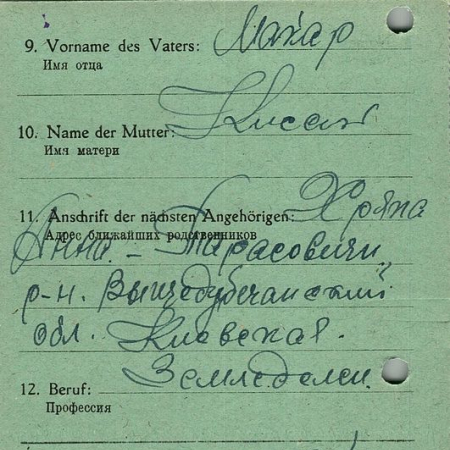 9. Vorname des Vaters: Макар
Имя отца
10. Name der Mutter:
Имя матери
11. Anschrift der nächsten Angehörigen: Хряпа
Адрес ближайших родственников
Анна - Тарасовичи
р-н. Вышедубечанский
обл. Киевская.
12. Beruf: Земледелец.
Профессия